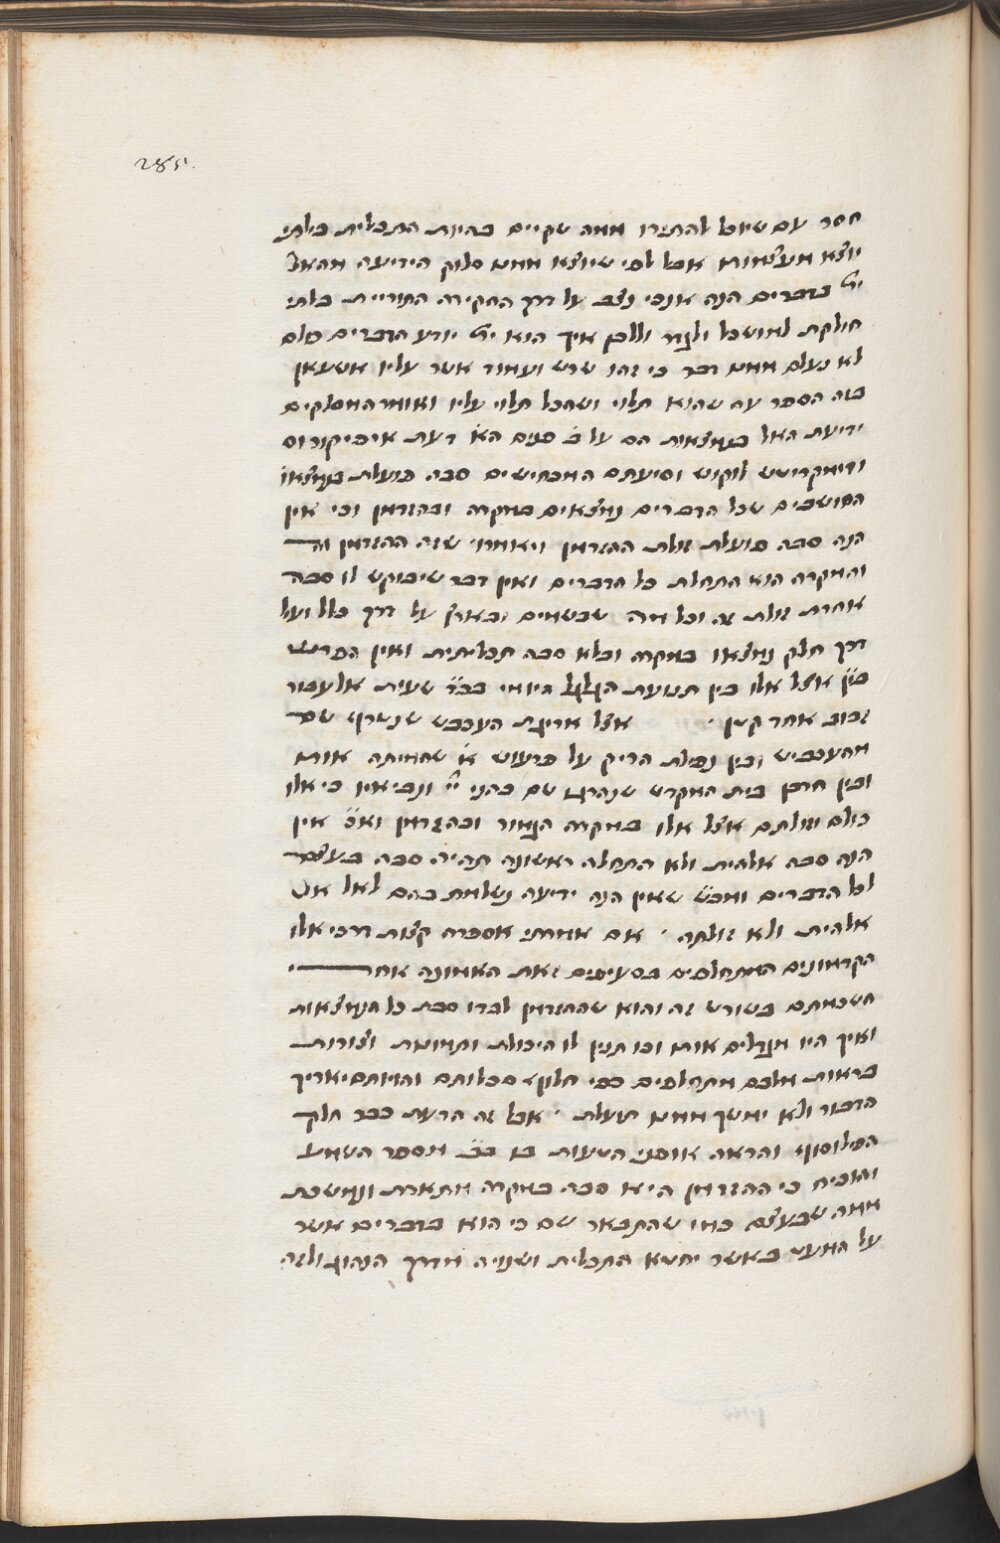 285.
חסר עם שיוכל להתגדו ממה שקיים בהיות התכלית בלתי
יוצא מעצמות אבל לפי שיוצא ממנו סלוק הידיעה מהאל
ית׳ בדברים הנה אנכי נצב על דרך החקירה התוריית בלתי
חולקת למושכל איך הוא ית׳ יודע הדברים כלם
לא נעלם ממנו דבר כי זהו שרש ועמוד אשר עליו אשען
בזה הספר עד שהוא תלוי ושהכל תלוי עליו ואומר המסלקים
ידיעת האל בנמצאות הם על ב׳ פנים הא׳ דעת אפיקורוס
ודימקריטש וסיעתם המכחישים סבה פועלת בנמצאו׳
החושבים שכל הדברים נמצאים במקרה ובהזדמן וכי אין
הנה סבה פועלת זולת ההזדמן ויאמרו שזה ההזדמן וה
והמקרה הוא התחלת כל הדברים ואין דבר שיבוקש לו סבה
אחרת זולת זה וכל מה שבשמים ובארץ על דרך כלל ועל
דרך חלק נמצאו במקרה ובלא סבה תכליתית ואין הפרש
אצל אלו בין תנועת הגלגל היומי בכ״ד שעות אל עבור
זבוב אחד קטן · אצל אריגת העכביש שנטרף שם
מהעכביש ובין נפילת הריק על פרעוש א׳ שהמיתה אותו
ובין חרבן בית המקדש שנהרגו שם כהני יי׳ ונביאיו כי אלו
כולם וזולתם אצל אלו במקרה הגמור ובהזדמן וא״כ אין
הנה סבה אלהית ולא התחלה ראשונה תהיה סבה בעצם
לכל הדברים ומכ״ש שאין הנה ידיעה נשלמת בהם לאל או
אלהית ולא זולתה · אם אמרתי אספרה קצות דרכי אלו
הקדמונים המתחלפים בסעיפים זאת האמונה אחרי
הסכמתם בשורש זה והוא שההזדמן לבדו סבת כל הנמצאות
ואיך היו מגדלים אותו וכו תנין לו היכולת ותמונות וצורות
בראות אלכם מתחלפים כפי חלוף סכלותם והזיותם יאריך
הדבור ולא ימשך ממנו תועלת · אבל זה הדעת כבר חלק
הפילוסוף והראה אופני הטעות בו בב׳ מספר השמע
והוכיח כי ההזדמן היא סבה במקרה מתארת ונמשכת
ממה שבעצם כמו שהתבאר שם כי הוא בדברים אשר
על המעט באשר יחטא התכלית ושנויה מדרך הנהוג ולזה